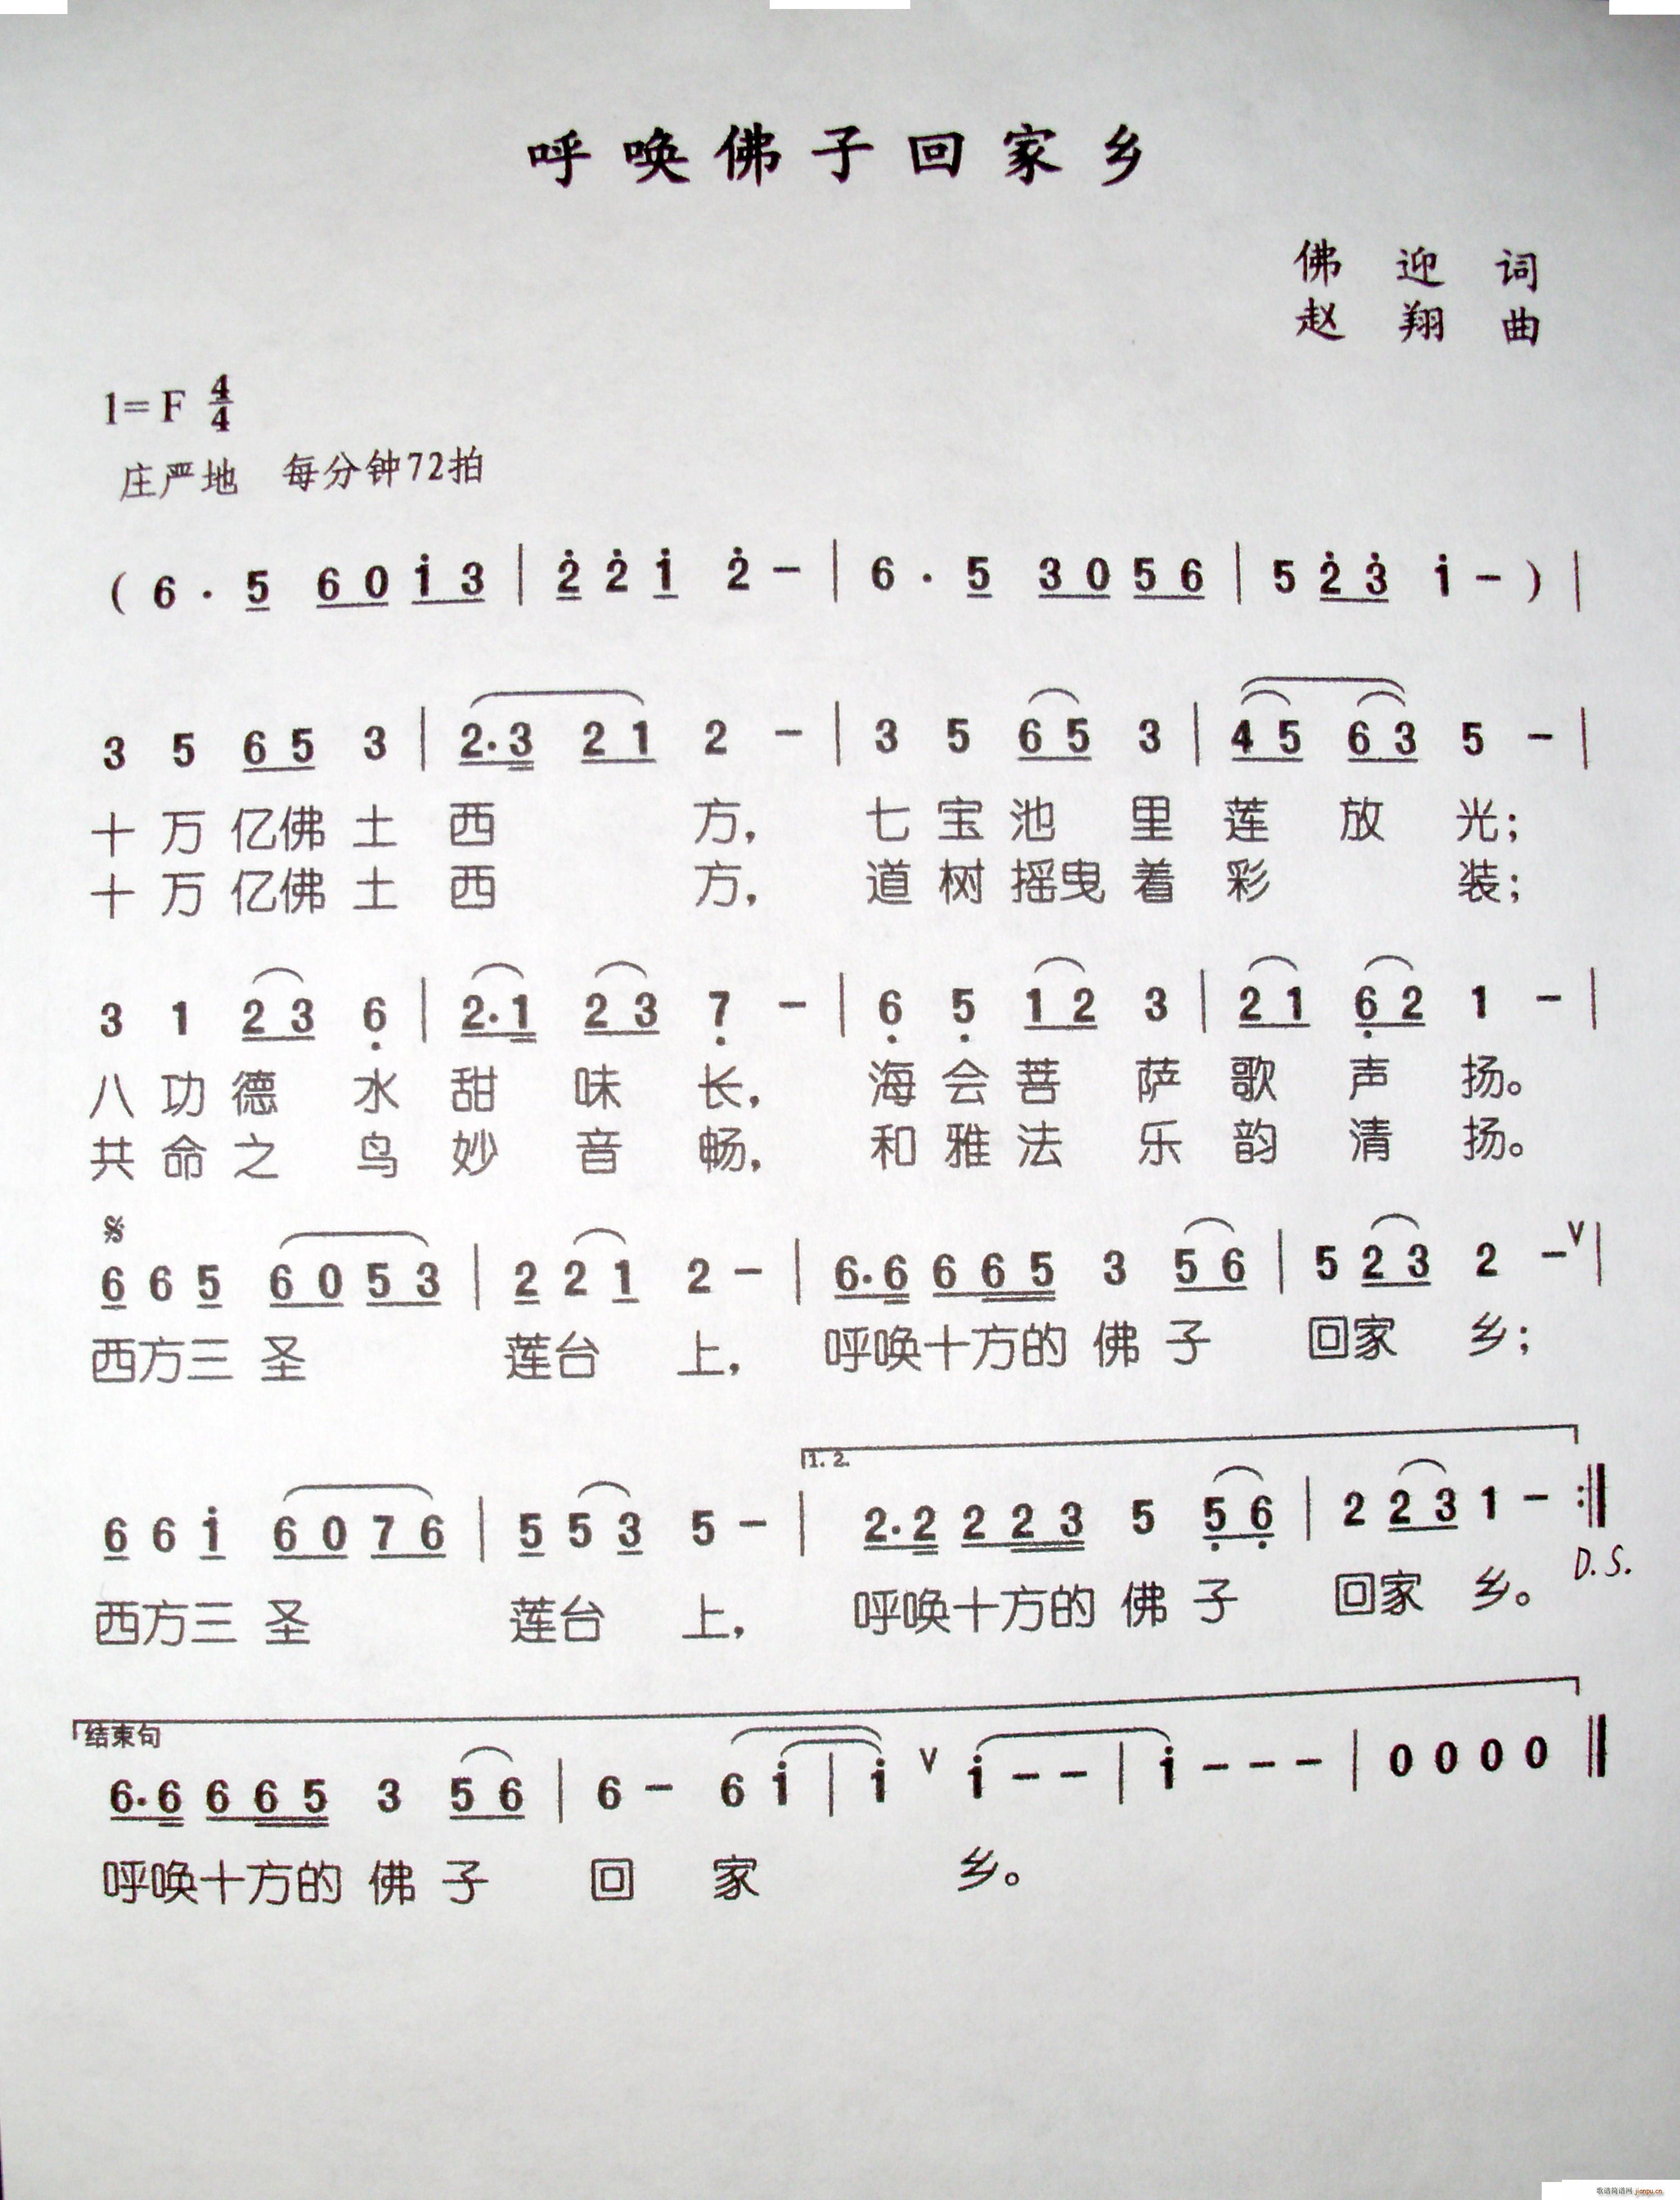 呼唤佛子回家乡
佛 迎 词
赵 翔 曲
1= F 4/4
庄严地 每分钟72拍
( 6 · 5 6 0 i 3 | 2̇ 2̇ i 2̇ － | 6 · 5 3 0 5 6 | 5 2̇ 3̇ i － ) |
3 5 6 5 3 | 2·3 2 1 2 － | 3 5 6 5 3 | 4 5 6 3 5 － |
十万亿佛土西方，七宝池里莲放光；
十万亿佛土西方，道树摇曳着彩装；
3 1 2 3 6̣ | 2·1 2 3 7̣ － | 6̣ 5̣ 1 2 3 | 2 1 6̣ 2 1 － |
八功德水甜味长，海会菩萨歌声扬。
共命之鸟妙音畅，和雅法乐韵清扬。
𝄋
6 6 5 6 0 5 3 | 2 2 1 2 － | 6·6 6 6 5 3 5 6 | 5 2 3 2 － V |
西方三圣莲台上，呼唤十方的佛子回家乡；
1. 2.
6 6 i 6 0 7 6 | 5 5 3 5 － | 2·2 2 2 3 5 5̣ 6̣ | 2 2 3 1 － :‖
D.S.
西方三圣莲台上，呼唤十方的佛子回家乡。
结束句
6·6 6 6 5 3 5 6 | 6 － 6 i | i V i － － | i － － － | 0 0 0 0 ‖
呼唤十方的佛子回家乡。
歌谱简谱网 jianpu.cn